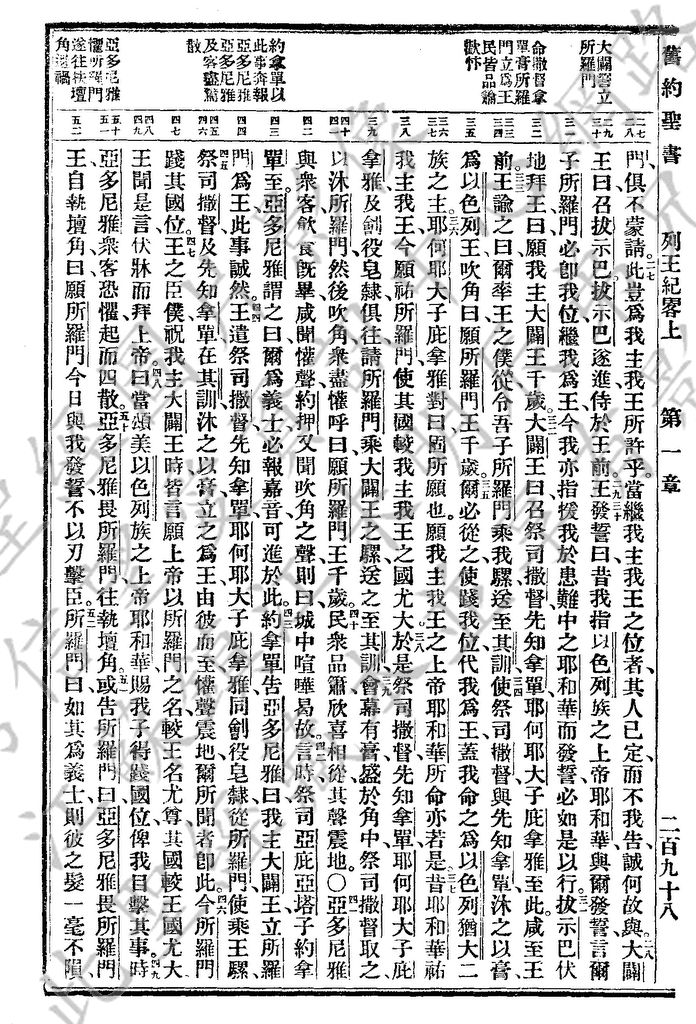 舊約聖書 列王紀畧上 第一章 二百九十八
大闢誓立
所羅門
命撒督拿
單膏所羅
門立爲王
民皆品簫
歡忭
約拿單以
此事奔報
亞多尼雅
亞多尼雅
及客盡驚
散
亞多尼雅
懼所羅門
遂往執壇
角遠禍
二七
二八
二九
三十
三一
三二
三三
三四
三五
三六
三七
三八
三九
四十
四一
四二
四三
四四
四五
四六
四七
四八
四九
五十
五一
五二
門、俱不蒙請。二七此豈爲我主我王所許乎。當繼我主我王之位者、其人已定、而不我告、誠何故與。二八大闢
王曰、召拔示巴、拔示巴遂進、侍於王前。二九三十王發誓曰、昔我指以色列族之上帝耶和華、與爾發誓、言爾
子所羅門、必卽我位、繼我爲王、今我亦指援我於患難中之耶和華而發誓、必如是以行。三一拔示巴伏
地拜王曰、願我主大闢王千歲。三二大闢王曰、召祭司撒督、先知拿單、耶何耶大子庇拿雅至此。咸至王
前。三三王諭之曰、爾率王之僕從、令吾子所羅門、乘我騾、送至其訓、三四使祭司撒督、與先知拿單、沐之以膏、
爲以色列王、吹角曰、願所羅門王千歲。三五爾必從之、使踐我位、代我爲王、蓋我命之爲以色列猶大二
族之主。三六耶何耶大子庇拿雅對曰、固所願也。願我主我王之上帝耶和華、所命亦若是。三七昔耶和華祐
我主我王、今願祐所羅門、使其國較我主我王之國尤大。三八於是祭司撒督、先知拿單、耶何耶大子庇
拿雅、及劊役皂隸俱往、請所羅門、乘大闢王之騾、送之至其訓。三九會幕有膏盛於角中、祭司撒督取之
以沐所羅門、然後吹角、衆盡懽呼曰、願所羅門王千歲。四十民衆品簫欣喜相從、其聲震地。〇四一亞多尼雅
與衆客飲食旣畢、咸聞懽聲、約押又聞吹角之聲、則曰、城中喧嘩曷故。四二言時、祭司亞庇亞塔子約拿
單至、亞多尼雅謂之曰、爾爲義士、必報嘉音、可進於此。四三約拿單告亞多尼雅曰、我主大闢王立所羅
門爲王、此事誠然。四四王遣祭司撒督、先知拿單、耶何耶大子庇拿雅、同劊役皂隸、從所羅門、使乘王騾、
四五祭司撒督及先知拿單、在其訓沐之以膏、立之爲王、由彼而至、懽聲震地、爾所聞者卽此。四六今所羅門
踐其國位。四七王之臣僕、祝我主大闢王時、皆言願上帝以所羅門之名、較王名尤尊、其國較王國尤大、
王聞是言、伏牀而拜上帝曰、四八當頌美以色列族之上帝耶和華、賜我子得踐國位、俾我目擊其事。時四九
亞多尼雅衆客、恐懼、起而四散。五十亞多尼雅畏所羅門、往執壇角。五一或告所羅門曰、亞多尼雅畏所羅門
王、自執壇角曰、願所羅門今日與我發誓、不以刃擊臣。五二所羅門曰、如其爲義士、則彼之髮、一毫不隕、